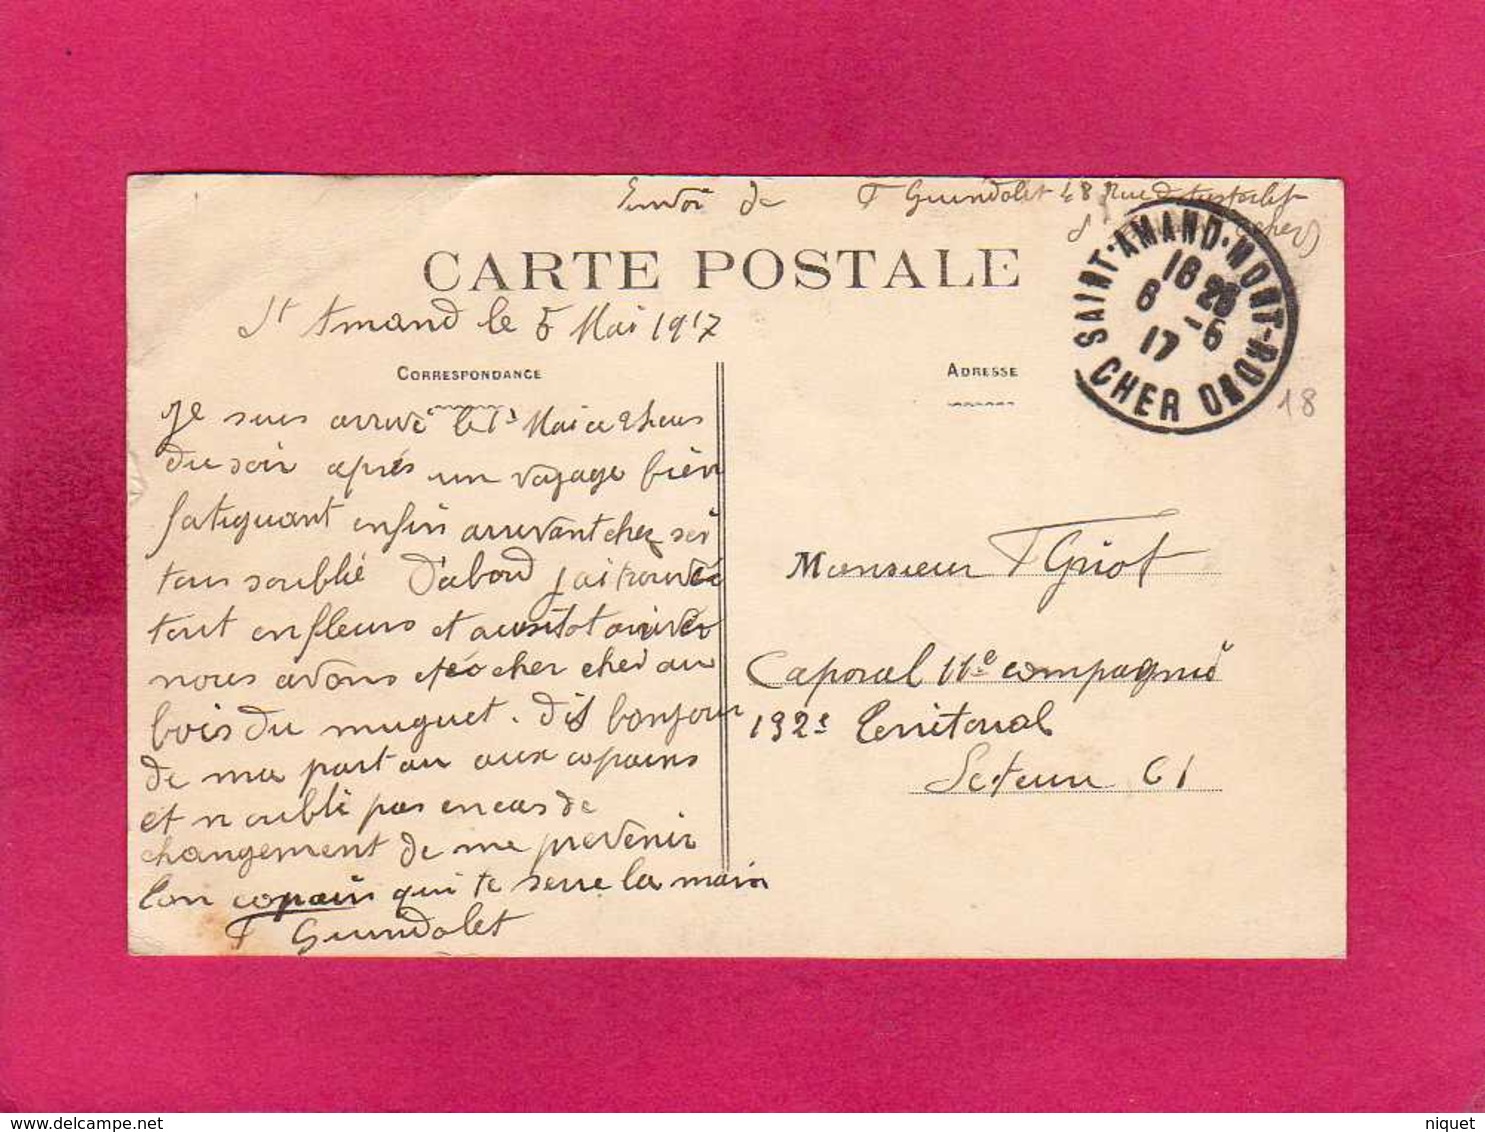 Envoi de F Guindolet 48 Rue
CARTE POSTALE
SAINT-AMAND-MONT-ROND
CHER
16 25
6 -5
17
18
St Amand le 5 Mai 1917
CORRESPONDANCE
ADRESSE
Je suis arrivé le 1er Mai a 2 heures
du soir après un voyage bien
fatiguant enfin arrivant chez soi
tous soublie D'abord j ai trouvé
tout en fleurs et aussitot arriver
nous avons été chercher au
bois du muguet. dis bonjour
de ma part au aux copains
et n oublie pas en cas de
changement de me prevenir
Ton copain qui te serre la main
F Guindolet
Monsieur F Griot
Caporal 11e compagnie
192e Territorial
Secteur 61
niquet